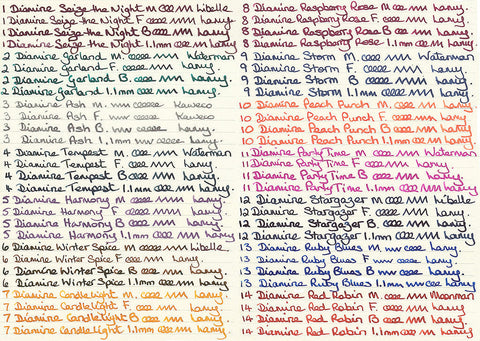 1 Diamine Seize the Night M Libelle
1 Diamine Seize the Night F Lamy
1 Diamine Seize the Night B Lamy
1 Diamine Seize the Night 1.1mm Lamy
2 Diamine Garland M. Waterman
2 Diamine Garland F. Lamy
2 Diamine Garland B Lamy
2 Diamine Garland 1.1mm Lamy
3 Diamine Ash M. Kaweco
3 Diamine Ash F. Kaweco
3 Diamine Ash B Lamy
3 Diamine Ash 1.1mm Lamy
4 Diamine Tempest M. Waterman
4 Diamine Tempest F. Lamy
4 Diamine Tempest B Lamy
4 Diamine Tempest 1.1mm Lamy
5 Diamine Harmony M Libelle
5 Diamine Harmony F Lamy
5 Diamine Harmony B Lamy
5 Diamine Harmony 1.1mm Lamy
6 Diamine Winter Spice M. Libelle
6 Diamine Winter Spice F. Lamy
6 Diamine Winter Spice B Lamy
6 Diamine Winter Spice 1.1mm Lamy
7 Diamine Candle Light M. Lamy
7 Diamine Candle Light F. Lamy
7 Diamine Candle Light B Lamy
7 Diamine Candle Light 1.1mm Lamy
8 Diamine Raspberry Rose M Libelle
8 Diamine Raspberry Rose F. Lamy
8 Diamine Raspberry Rose B Lamy
8 Diamine Raspberry Rose 1.1mm Lamy
9 Diamine Storm M. Waterman
9 Diamine Storm F. Lamy
9 Diamine Storm B Lamy
9 Diamine Storm 1.1mm Lamy
10 Diamine Peach Punch M. Lamy
10 Diamine Peach Punch F. Lamy
10 Diamine Peach Punch B Lamy
10 Diamine Peach Punch 1.1mm Lamy
11 Diamine Party Time M Waterman
11 Diamine Party Time F Lamy
11 Diamine Party Time B Lamy
11 Diamine Party Time 1.1mm Lamy
12 Diamine Stargazer M Libelle
12 Diamine Stargazer F. Lamy
12 Diamine Stargazer B Lamy
12 Diamine Stargazer 1.1mm Lamy
13 Diamine Ruby Blues M Lamy
13 Diamine Ruby Blues F Lamy
13 Diamine Ruby Blues B Lamy
13 Diamine Ruby Blues 1.1mm Lamy
14 Diamine Red Robin M. Moonman
14 Diamine Red Robin F. Lamy
14 Diamine Red Robin B Lamy
14 Diamine Red Robin 1.1mm Lamy